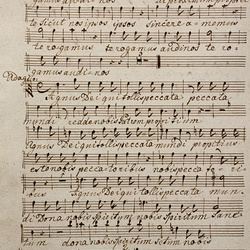 te Sicut nos ipsos Sincere amemus
te rogamus te rogamus audi nos te ro
gamus audi nos
Adagio
Agnus Dei qui tollis peccata peccata
mundi redde nobis Patrem propitium
Agnus Dei qui tollis peccata mundi propitius
esto nobis peccatoribus nobis pecca to ri
bus Agnus Dei qui tollis peccata mun
di Dona nobis Spiritum nobis Spiritum Sanc
tum dona nobis Spiritum